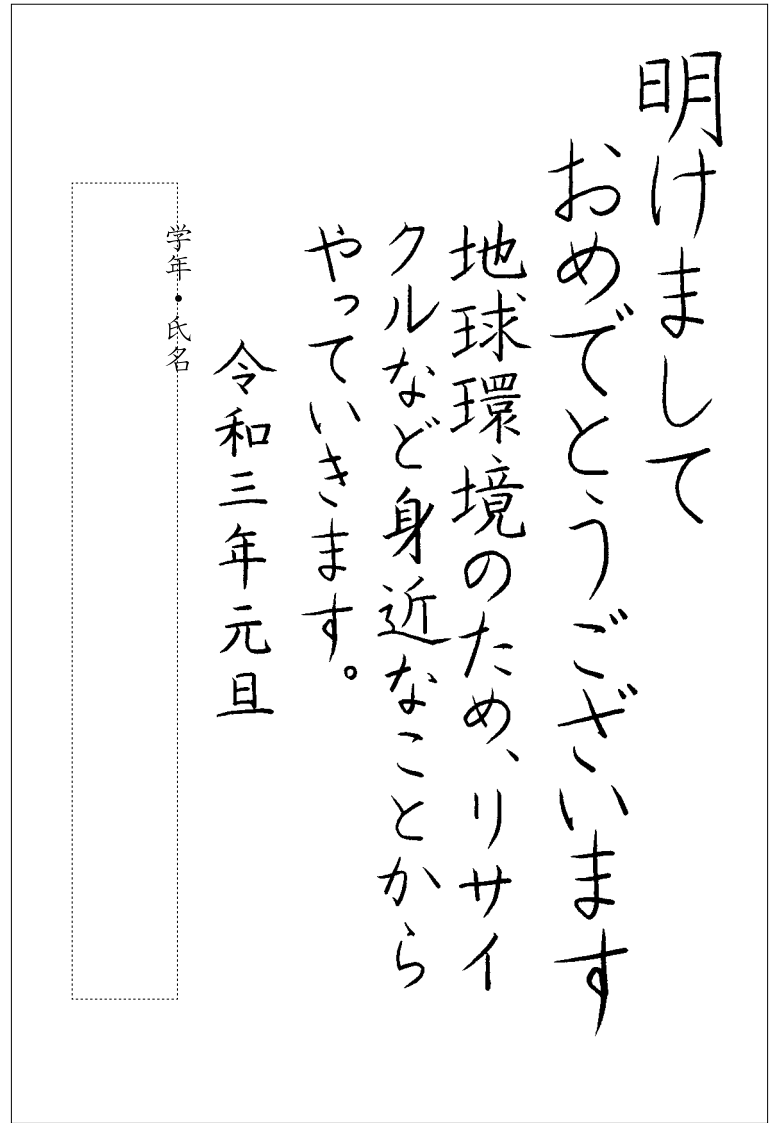 明けまして
おめでとうございます
地球環境のため、リサイ
クルなど身近なことから
やっていきます。
令和三年元旦
学年・氏名